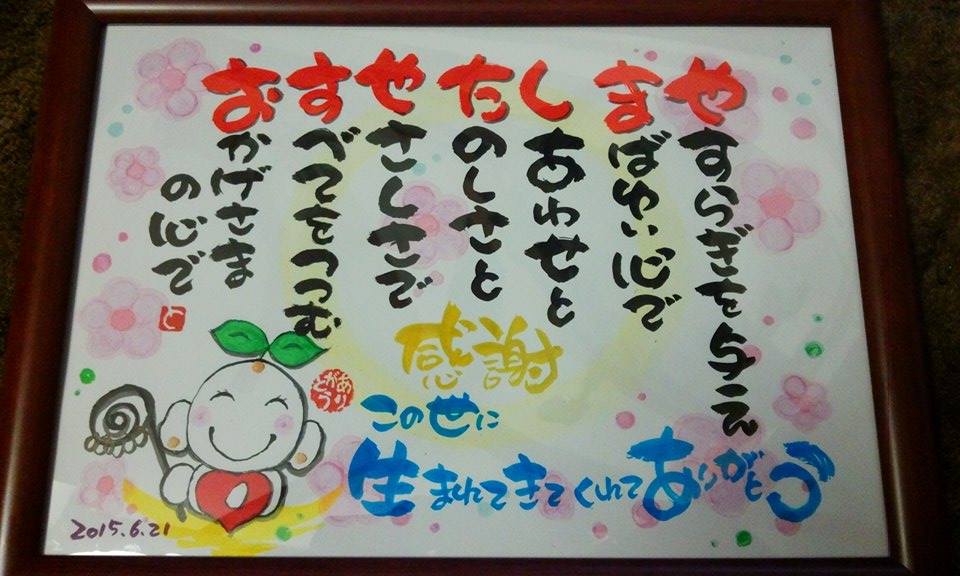 やすらぎを与え
まばゆい心で
しあわせと
たのしさと
やさしさで
すべてをつつむ
おかげさま
の心で
と
感謝
この世に
生まれてきてくれてありがとう
ありがとう
2015.6.21